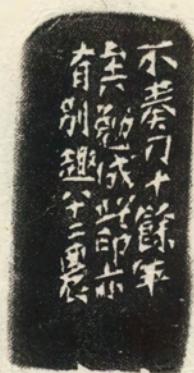 不奏刀十餘年
矣勉成此印亦
有別趣八十二農